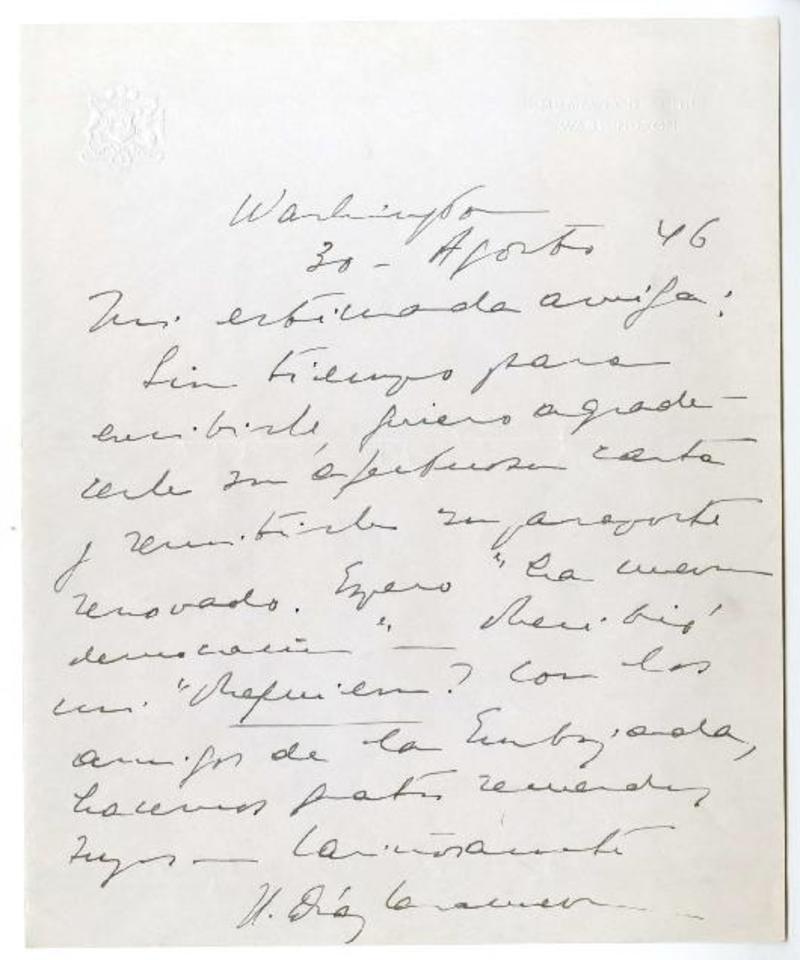 Washington
30 - Agosto 46
Mi estimada amiga:
Sin tiempo para
escribirle, quiero agrade-
cerle su afectuosa carta
y remitirle su pasaporte
renovado. Espero "La nueva
democracia" — Recibió
mi "Requiem"? Con los
amigos de la Embajada,
hacemos gratos recuerdos
suyos — Cariñosamente
H. Díaz Casanueva
WASHINGTON